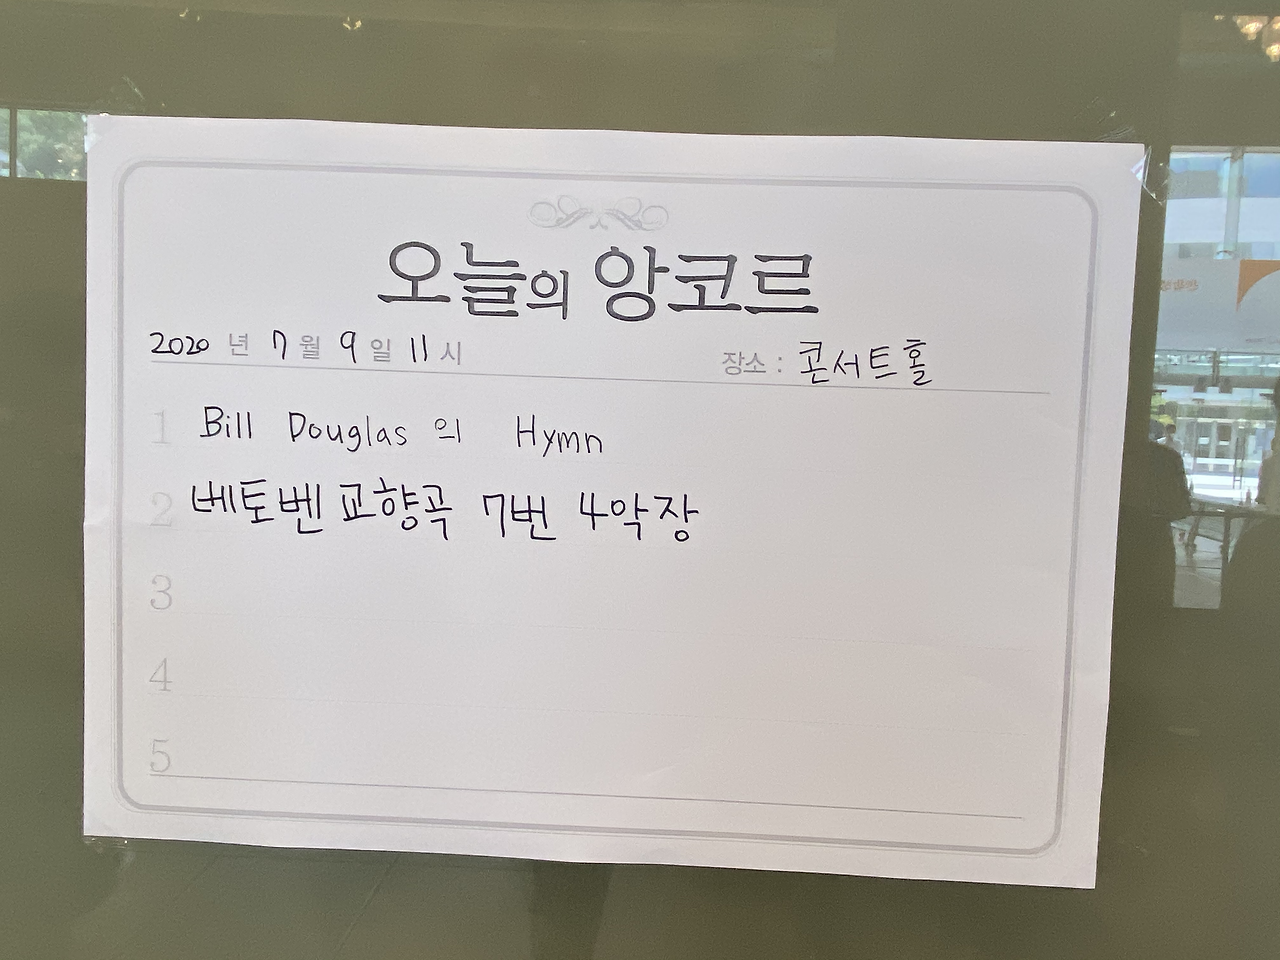 오늘의 앙코르
2020 년 7 월 9 일 11 시 장소 : 콘서트홀
1 Bill Douglas 의 Hymn
2 베토벤 교향곡 7번 4악장
3
4
5